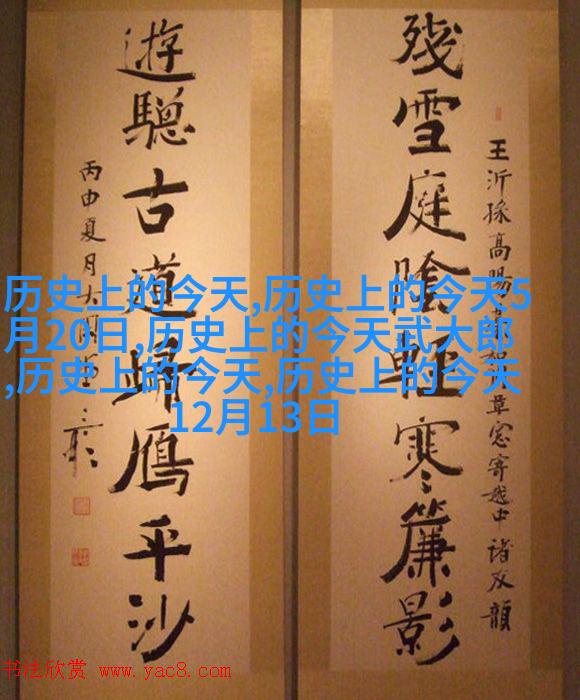 殘雪庭陰輕寒簾影
王沂孫高陽 草窓寄越中諸友韻
遊驄古道歸鴈平沙
丙申夏月大
历史上的今天,历史上的今天5
月20日,历史上的今天武大郎
,历史上的今天,历史上的今天
12月13日
书法欣赏 www.yac8.com